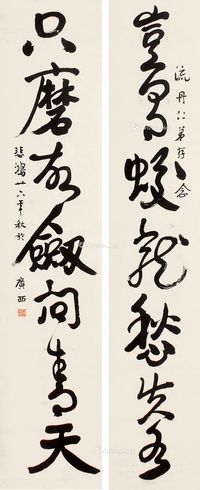 流丹仁弟存念
豈為蛟龍愁失水
只磨古劍問青天
悲鴻廿六年秋於廣西